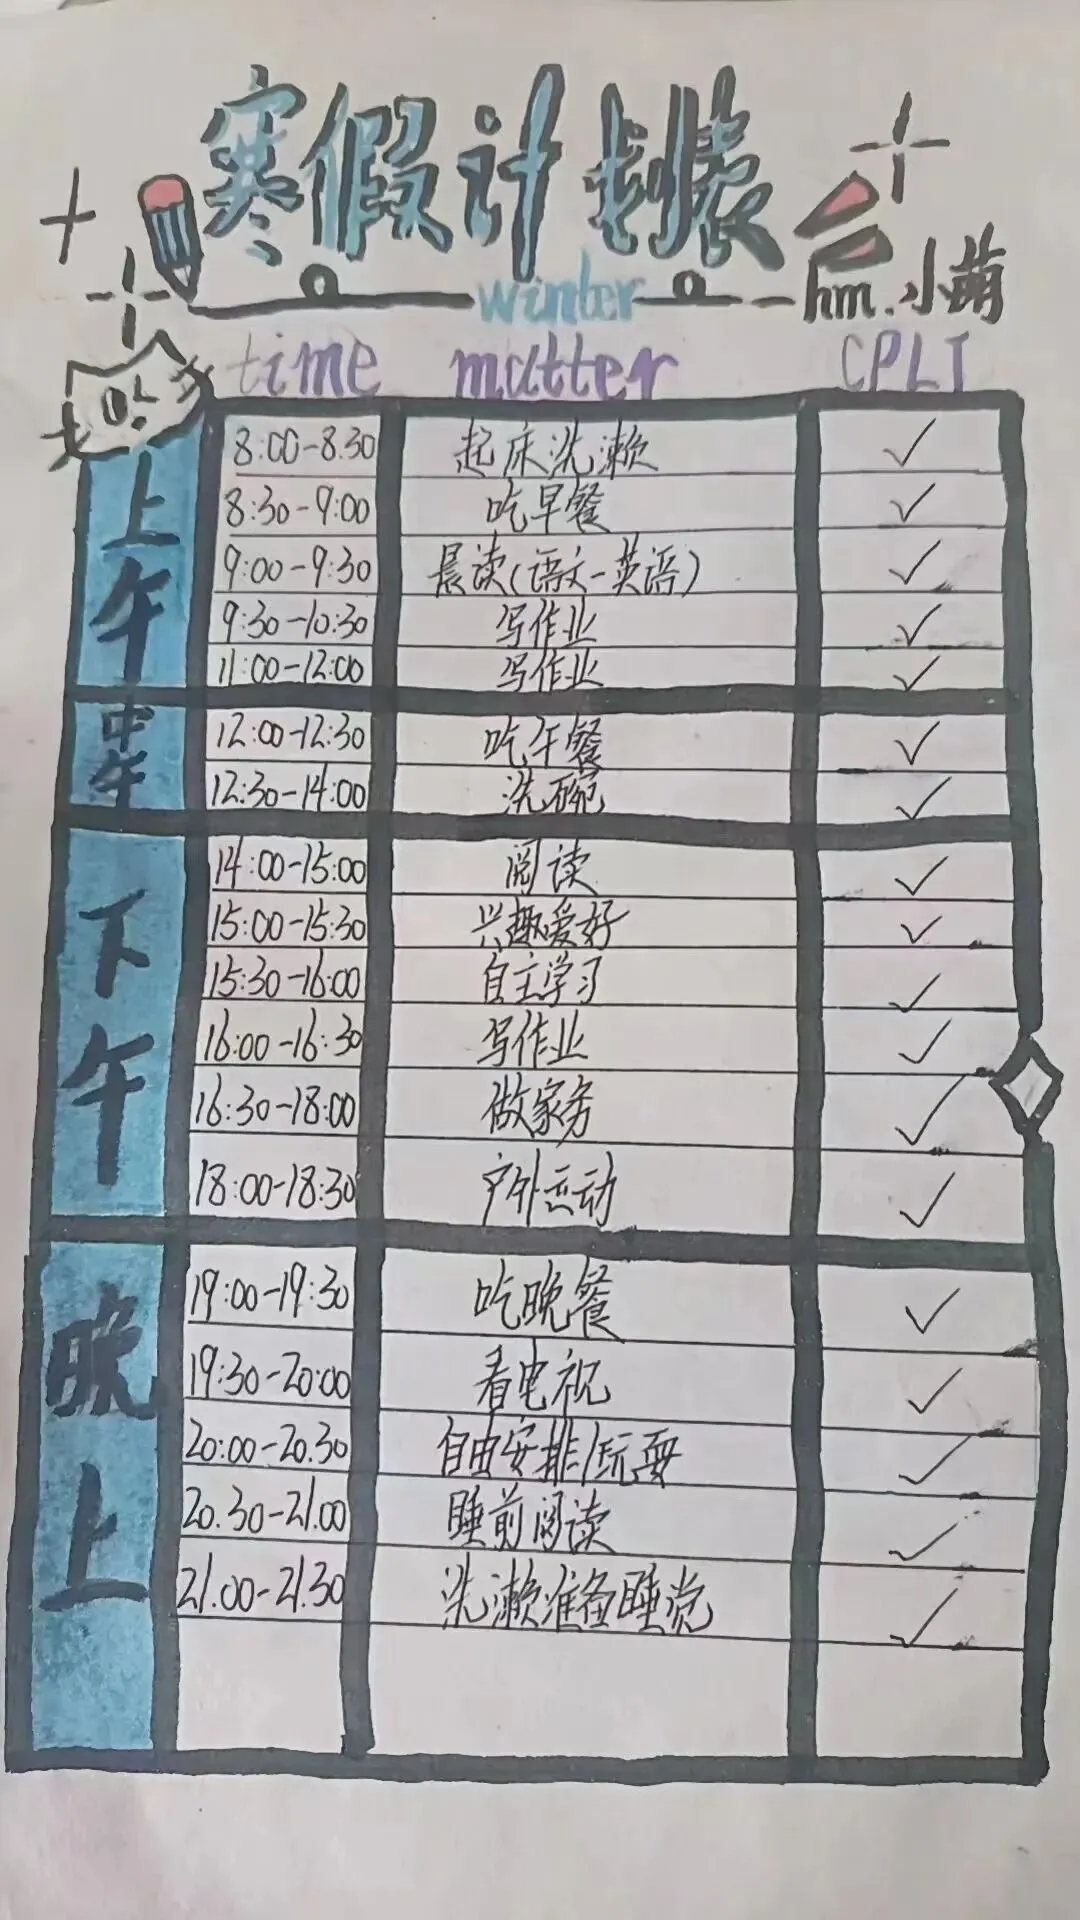 寒假计划表
winter
hm.小萌
time matter CPLT
上午
8:00-8:30 起床洗漱 ✓
8:30-9:00 吃早餐 ✓
9:00-9:30 晨读(语文-英语) ✓
9:30-10:30 写作业 ✓
11:00-12:00 写作业 ✓
中午
12:00-12:30 吃午餐 ✓
12:30-14:00 洗碗 ✓
下午
14:00-15:00 阅读 ✓
15:00-15:30 兴趣爱好 ✓
15:30-16:00 自主学习 ✓
16:00-16:30 写作业 ✓
16:30-18:00 做家务 ✓
18:00-18:30 户外运动 ✓
晚上
19:00-19:30 吃晚餐 ✓
19:30-20:00 看电视 ✓
20:00-20.30 自由安排/玩耍 ✓
20.30-21.00 睡前阅读 ✓
21.00-21.30 洗漱准备睡觉 ✓